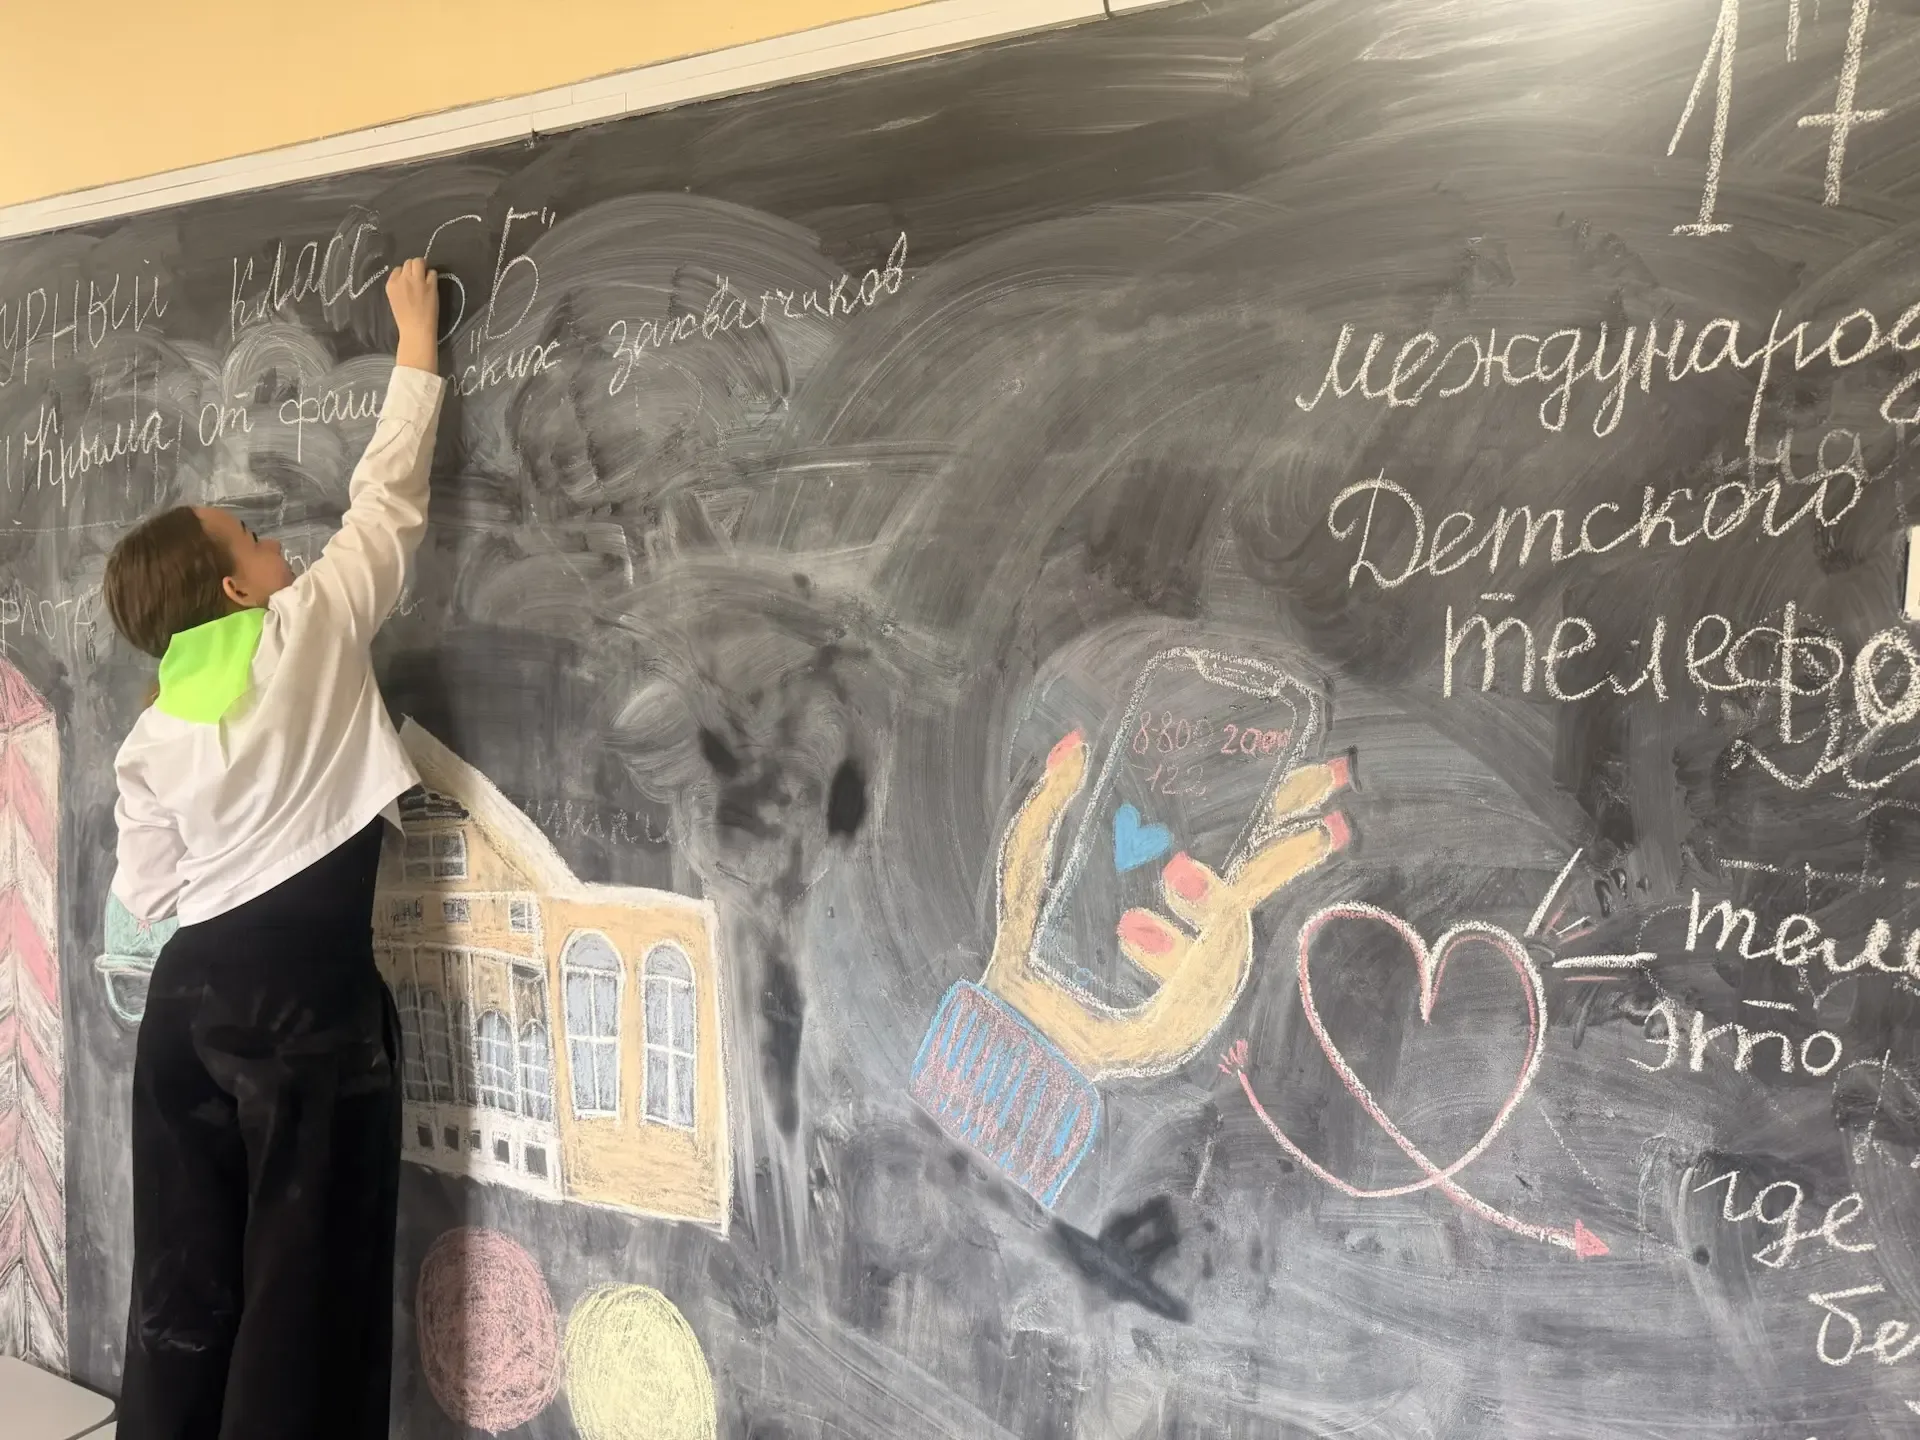 урный класс 6 „Б"
Крыма от фашистских захватчиков
флота
17
международ
Детского
телефо
8-800 2000
122
теле
это
где
бе